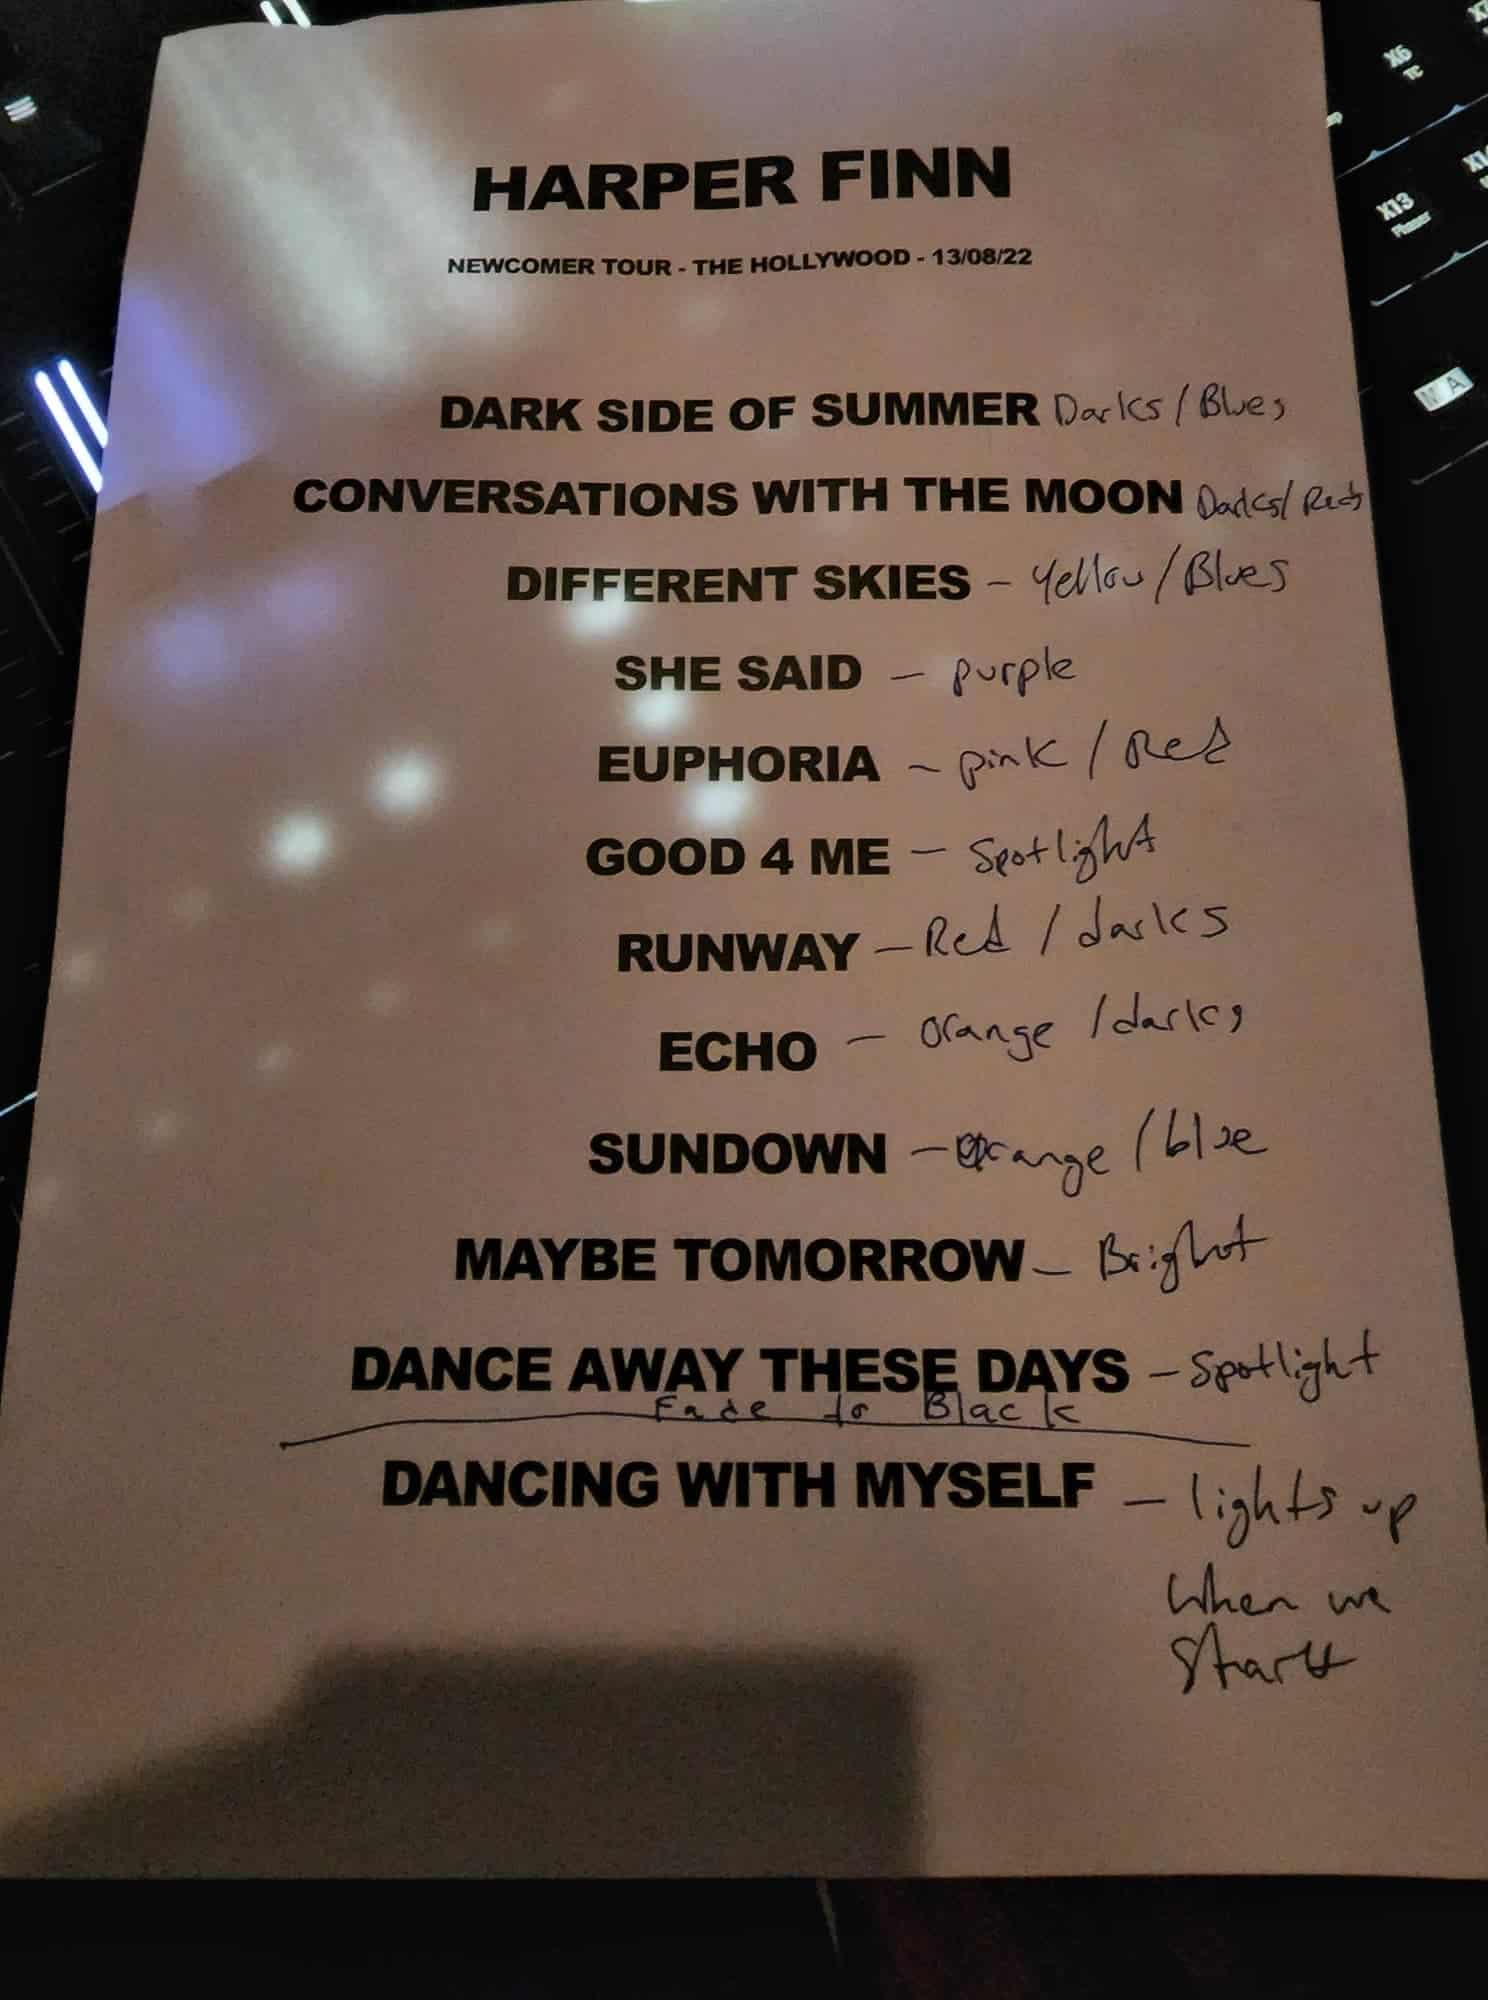 HARPER FINN
NEWCOMER TOUR - THE HOLLYWOOD - 13/08/22
DARK SIDE OF SUMMER Darks / Blues
CONVERSATIONS WITH THE MOON Darks/ Reds
DIFFERENT SKIES - Yellow / Blues
SHE SAID - purple
EUPHORIA - pink / Red
GOOD 4 ME - Spotlight
RUNWAY - Red / darks
ECHO - Orange / darks
SUNDOWN - Orange / blue
MAYBE TOMORROW - Bright
DANCE AWAY THESE DAYS - Spotlight
Fade to Black
DANCING WITH MYSELF - lights up
when we
start
X6
TC
X13
Phaser
MA